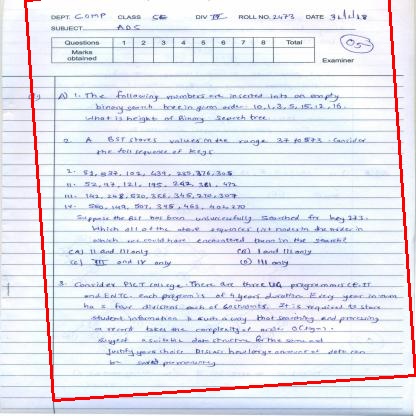 DEPT. COMP CLASS SE DIV IV ROLL NO. 2473 DATE
SUBJECT ADS
Questions 1 2 3 4 5 6 7 8 Total
Marks obtained
05
Examiner
A) 1. The following numbers are inserted into an empty
binary search tree in given order. 10, 1, 3, 5, 15, 12, 16.
What is height of Binary Search tree.
2. A BST stores values in the range 37 to 573. Consider
the foll sequence of keys
I. 81, 537, 102, 439, 285, 376, 305
II. 52, 97, 121, 195, 242, 381, 472
III. 142, 248, 520, 386, 345, 270, 307
IV. 550, 149, 507, 395, 463, 402, 270
Suppose the BST has been unsuccessfully searched for key 273.
Which all of the above sequences list nodes in the order in
which we could have encountered them in the search?
(A) II and III only (B) I and III only
(C) III and IV only (D) III only
3. Consider PICT college. There are three UG programmes CE, IT
and ENTC. each program is of 4 years duration. Every year in turn
has 3 four divisions each of 60 students. It is required to store
student information in such a way that searching and processing
a record takes the complexity of order O(log n).
Suggest a suitable data structure for the same and
justify your choice. Discuss how large amount of data can
be saved permanently